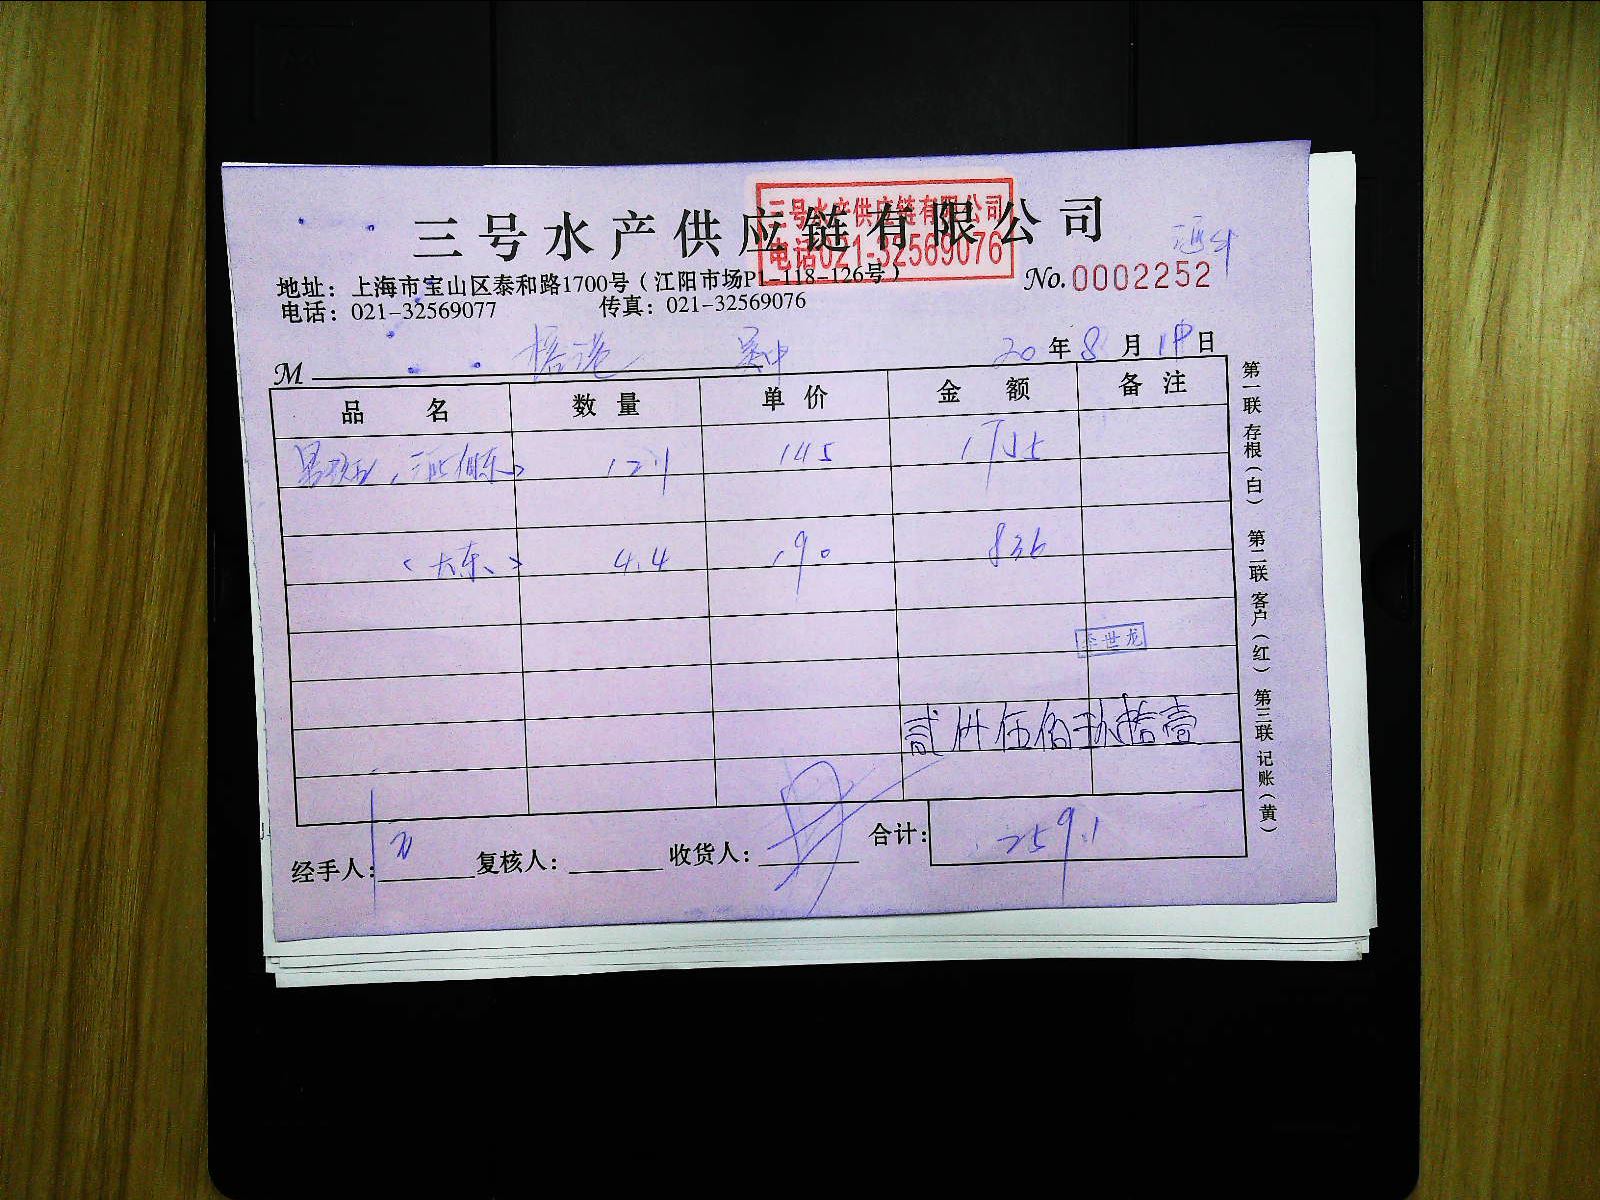 三号水产供应链有限公司
三号水产供应链有限公司
电话021-32569076
地址：上海市宝山区泰和路1700号（江阳市场P1-118-126号）
No.0002252
电话：021-32569077 传真：021-32569076
M 20年8月19日
品名 数量 单价 金额 备注
145
〈大东〉 4.4 190 836
李世龙
贰仟伍佰玖拾壹
经手人： 复核人： 收货人： 合计： 2591
第一联 存根（白） 第二联 客户（红） 第三联 记账（黄）